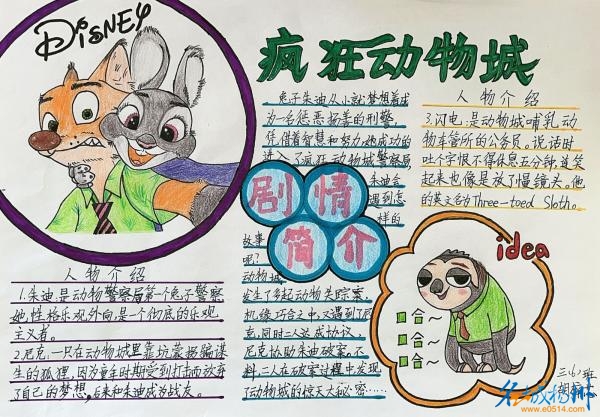 DISNEY
疯狂动物城
兔子朱迪从小就梦想着成
为一名惩恶扬善的刑警,
凭借着智慧和努力,她成功的
进入了疯狂动物城警察局,
朱迪会
遇到怎
样的
故事
呢?
动物城
发生了多起动物失踪案,
机缘巧合之中,又遇到了尼
克,同时二人达成协议,
尼克协助朱迪破案,不
料,二人在破案过程中发现
了动物城的惊天大秘密……
剧情
简介
人物介绍
3.闪电,是动物城哺乳动
物车管所的公务员。说话时
吐个字恨不得休息五分钟,连笑
起来也像是放了慢镜头。他
的英文名为Three-toed Sloth。
idea
哈~
哈~
哈~
人物介绍
1.朱迪是动物警察局第一个兔子警察
她,性格乐观外向,是一个彻底的乐观
主义者。
2.尼克,一只在动物城里靠坑蒙拐骗谋
生的狐狸,因为童年时期受到打击而放弃
了自己的梦想,后来和朱迪成为战友。
三(6)班
www.e0514.com